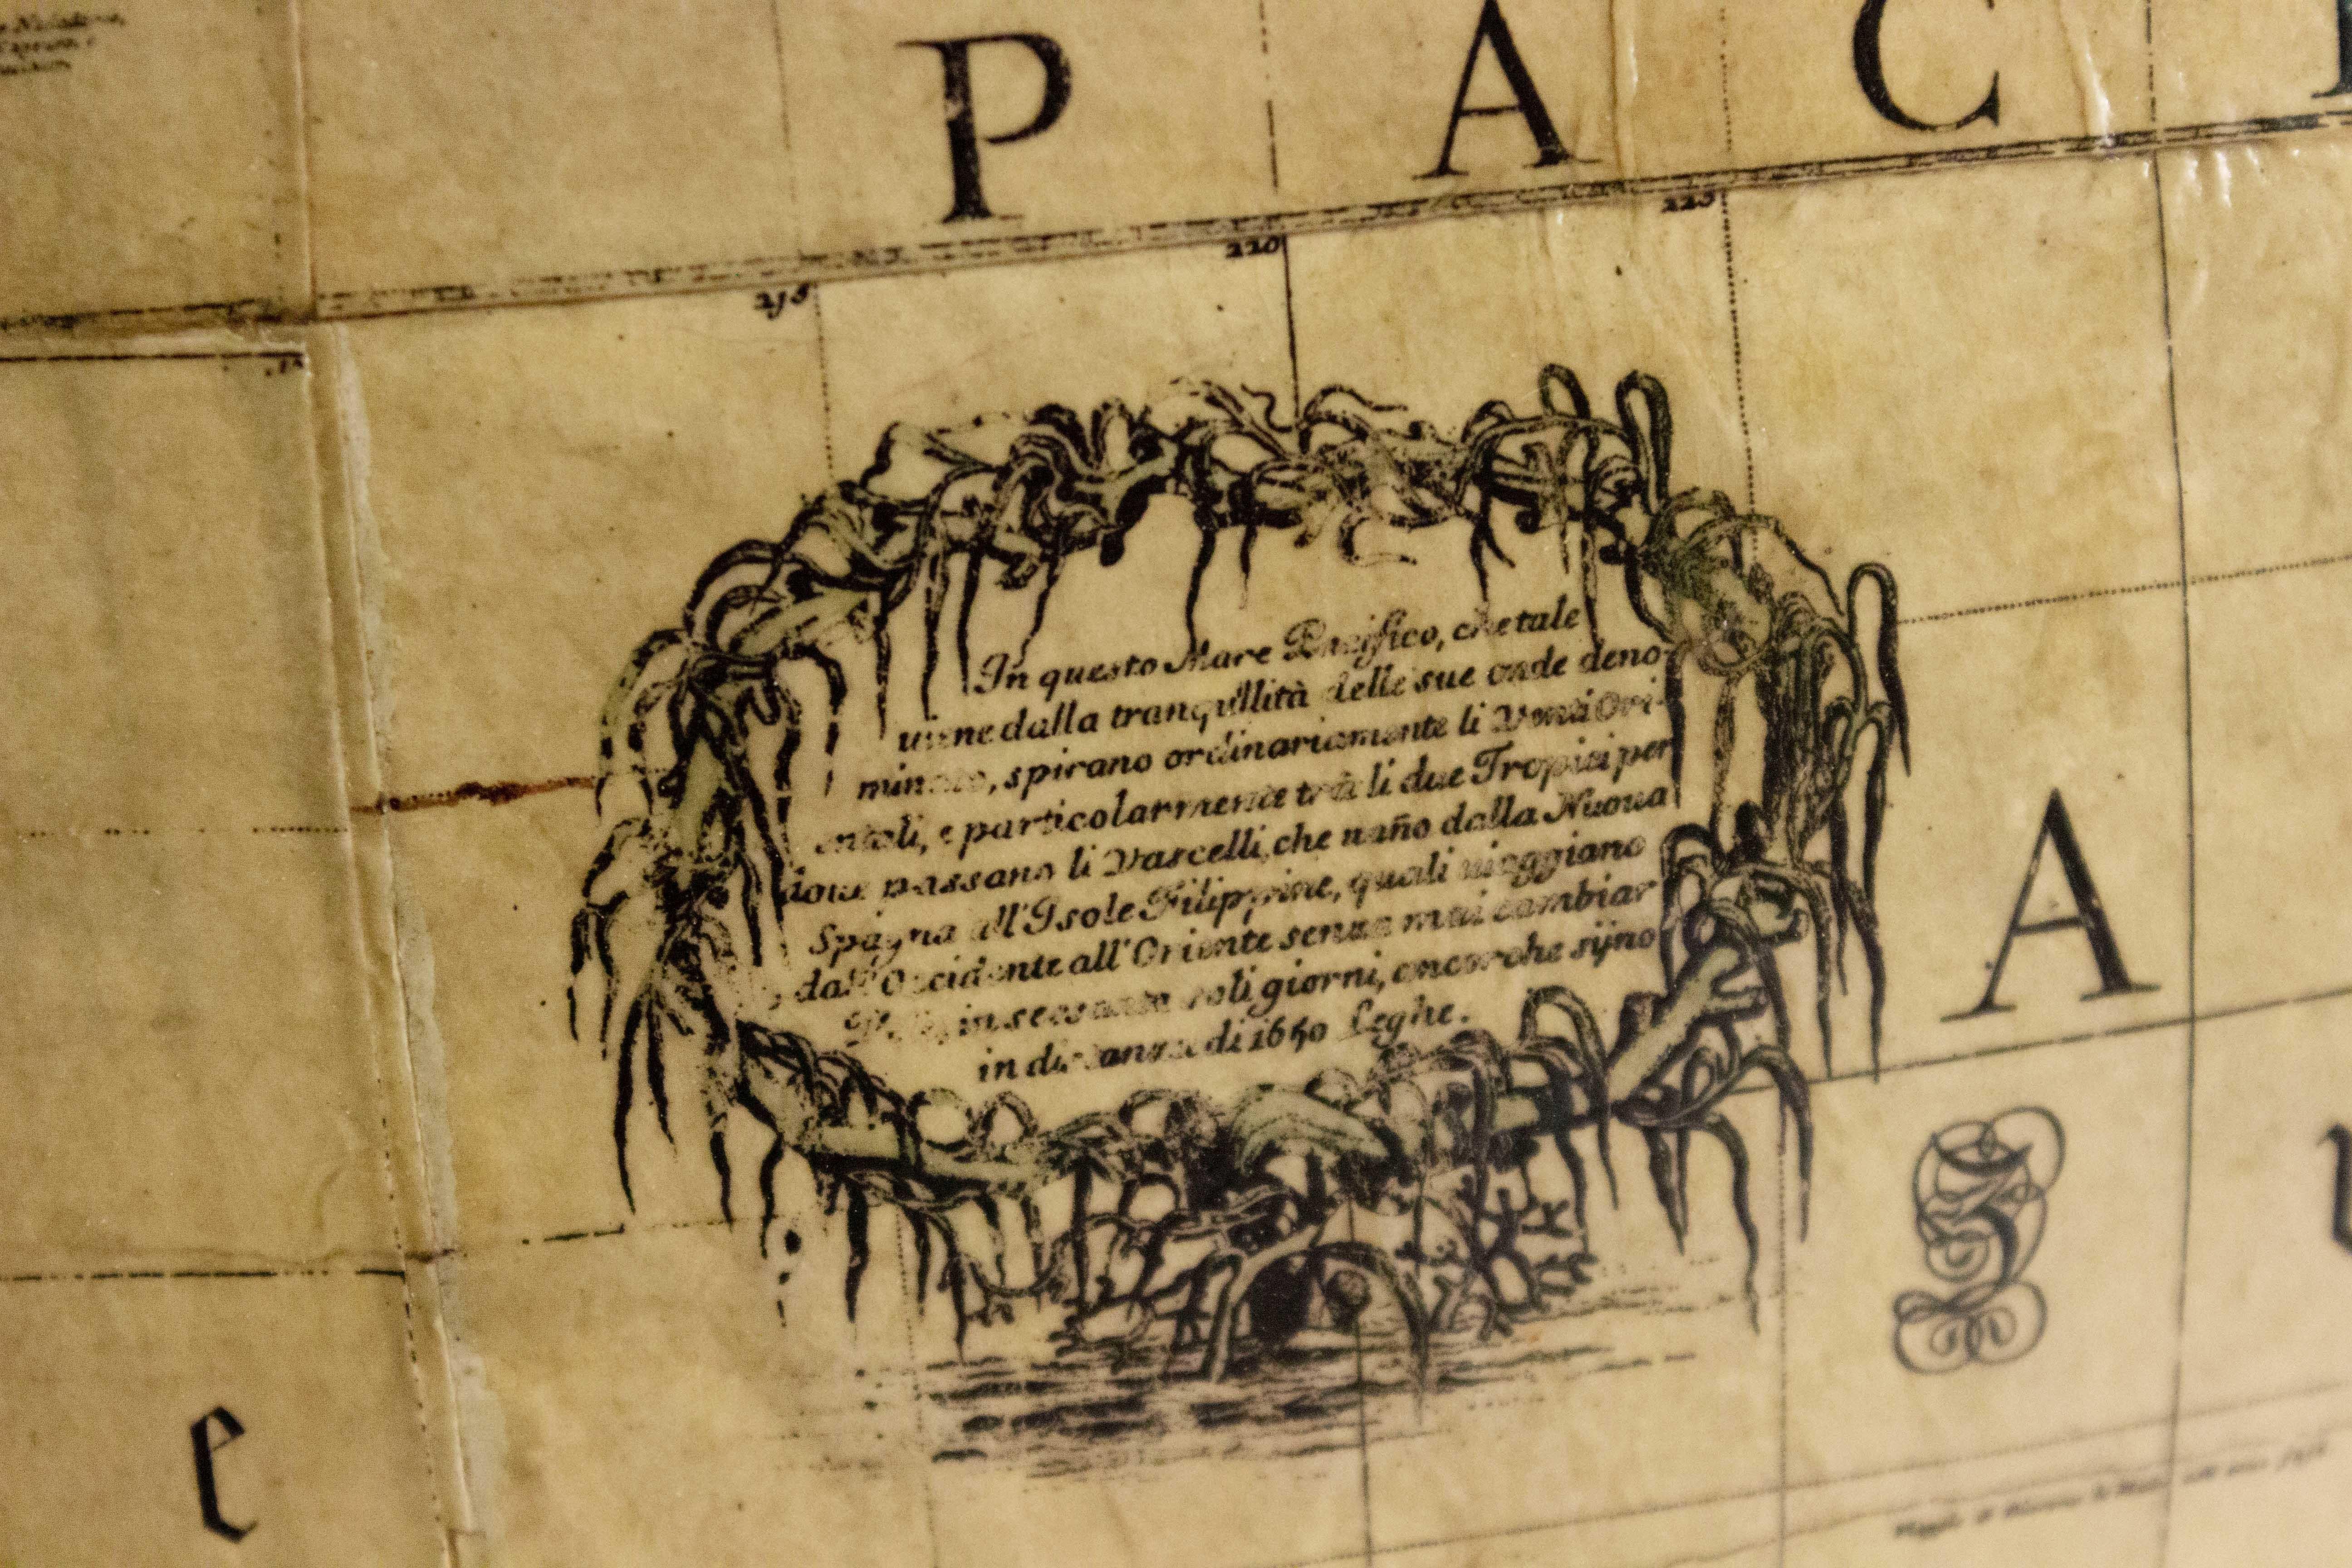 P A C
215
220
225
In questo Mare Pacifico, che tale
uiene dalla tranquillità delle sue onde deno-
minato, spirano ordinariamente li Venti Ori-
entali, e particolarmente tra li due Tropici per
doue passano li Vascelli, che uaño dalla Nuoua
Spagna all'Isole Filippine, quali uiaggiano
dall'Occidente all'Oriente senza mai cambiar
in sessanta soli giorni, ancorche sijno
in distanza di 1650 Leghe.
A
e